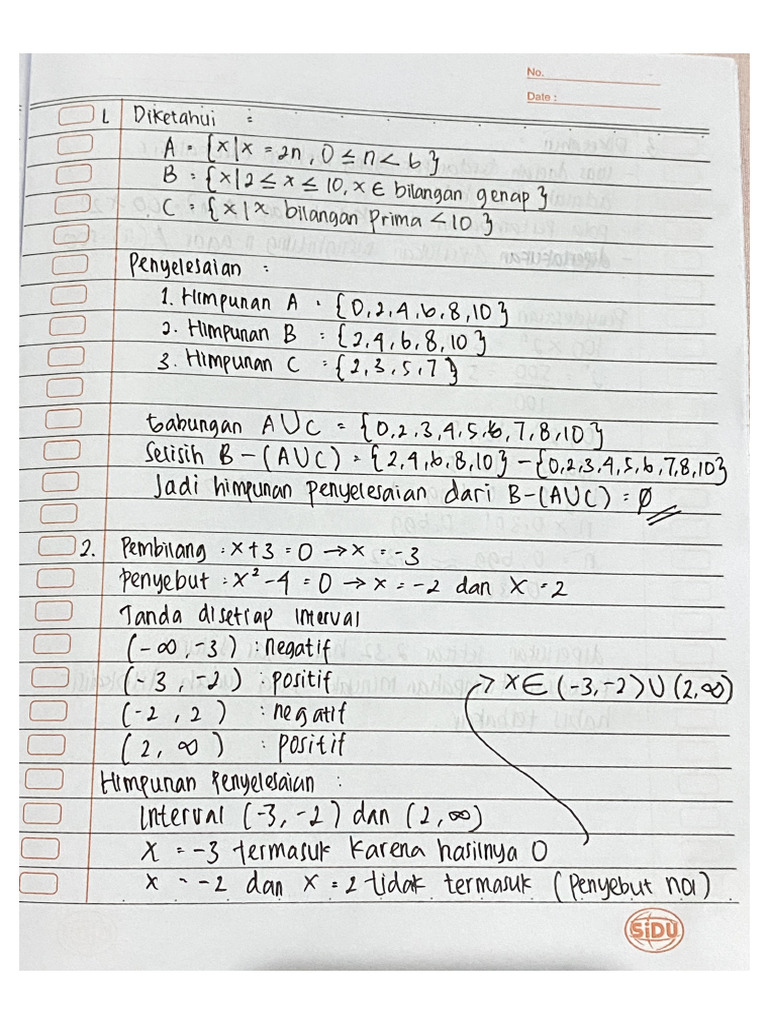 No.
Date :
1. Diketahui :
A = {x|x = 2n, 0 ≤ n < 6}
B = {x|2 ≤ x ≤ 10, x ∈ bilangan genap}
C = {x|x bilangan prima < 10}
Penyelesaian :
1. Himpunan A = {0,2,4,6,8,10}
2. Himpunan B = {2,4,6,8,10}
3. Himpunan C = {2,3,5,7}
Gabungan A∪C = {0,2,3,4,5,6,7,8,10}
Selisih B - (A∪C) = {2,4,6,8,10} - {0,2,3,4,5,6,7,8,10}
Jadi himpunan penyelesaian dari B-(A∪C) = ∅
2. Pembilang : x+3 = 0 → x = -3
Penyebut : x² - 4 = 0 → x = -2 dan x = 2
Tanda disetiap interval
(-∞, -3) : negatif
(-3, -2) : positif
→ x ∈ (-3,-2) ∪ (2,∞)
(-2, 2) : negatif
(2, ∞) : positif
Himpunan Penyelesaian :
Interval (-3, -2) dan (2,∞)
x = -3 termasuk karena hasilnya 0
x = -2 dan x = 2 tidak termasuk (penyebut nol)
SiDU